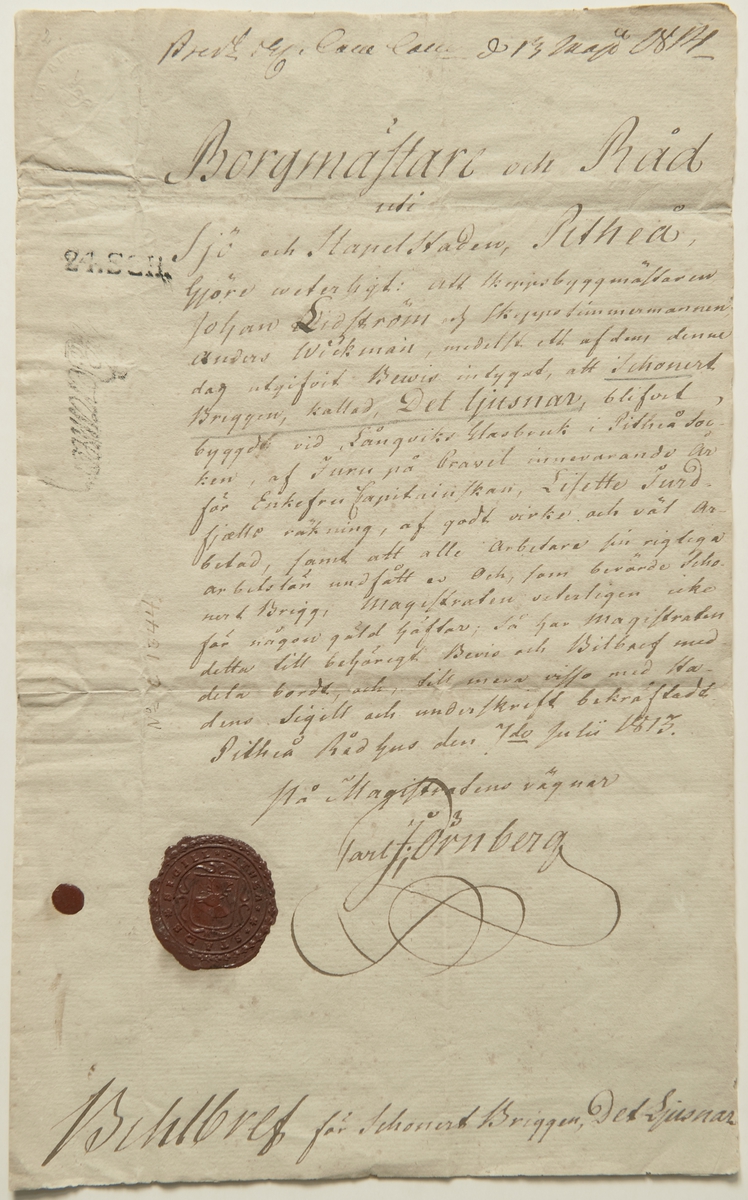 d 13 Maji 1814
Borgmästare och Råd
uti
Sjö och Stapel Staden, Pitheå,
Gjöre weterligt: att Skeppsbyggmästaren
Johan Lidström och Skeppstimmermannen
Anders Wickman, medelst ett af dem denne
dag utgifvit Bewis intygat, att Schonert
Briggen, kallad, Det Ljusnar, blifvit
byggdt vid Långviks Glasbruk i Pitheå Soc-
ken, af Furu på Cravel innevarande År
för Enkefru Capitainskan, Lisette Turd-
fjælls räkning, af godt virke och väl Ar-
betad, samt att alle Arbetare sin rigtiga
arbetslön undfått; Och, som berörde Scho-
nert Brigg, Magistraten veterligen icke
för någon gäld häftar; Så har Magistraten
detta till behörigt Bewis och Bilbref med
dela bordt, och, till mera visso med Sta-
dens Sigill och underskrift bekräftadt.
Pitheå Rådhus den 7do Julii 1813.
På Magistratens vägnar
Carl Fr Törnberg
Behlbref för Schonert Briggen, Det Ljusnar